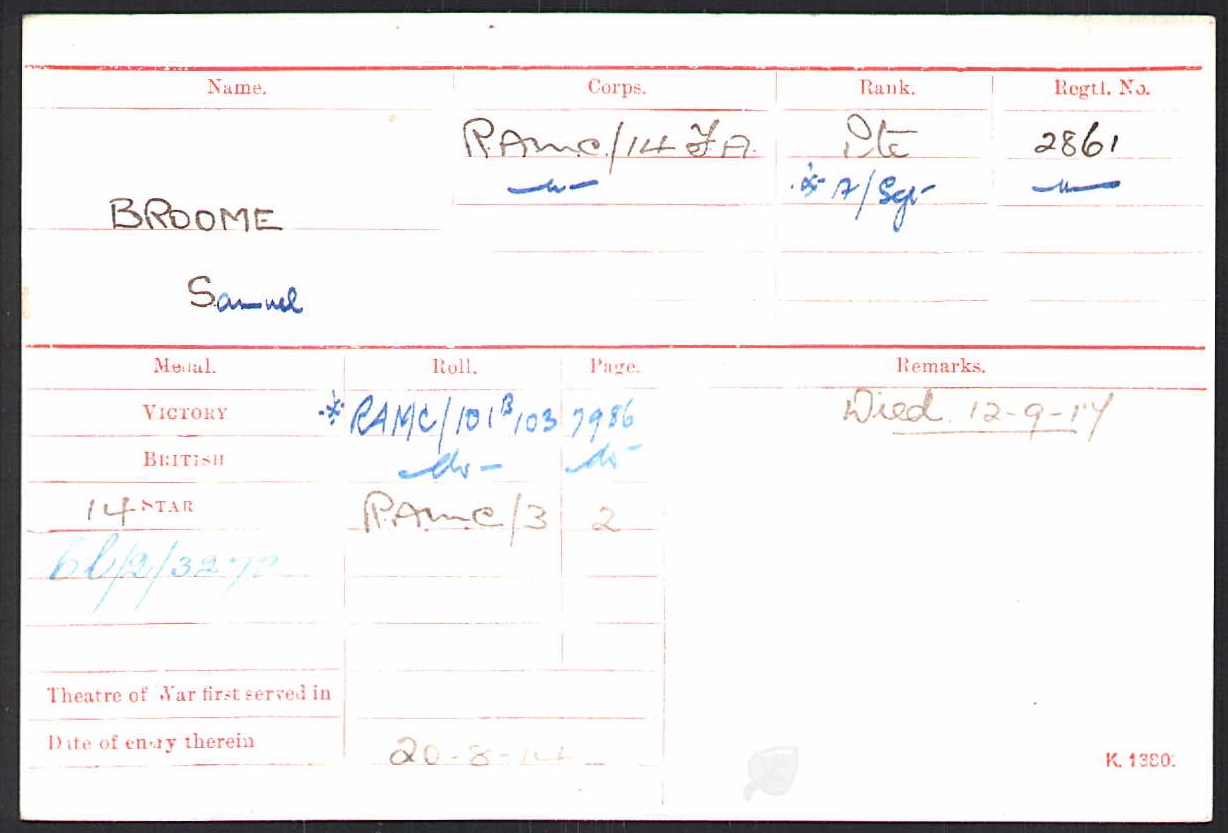 Name. Corps. Rank. Regtl. No.
R.A.M.C/14 F.A. Pte 2861
-"- * A/Sgt -"-
BROOME
Samuel
Medal. Roll. Page. Remarks.
VICTORY * RAMC/101B103 7986 Died 12-9-17
BRITISH -do- -do-
14 STAR R.A.M.C/3 2
Theatre of War first served in
Date of entry therein 20-8-14
K. 1380.